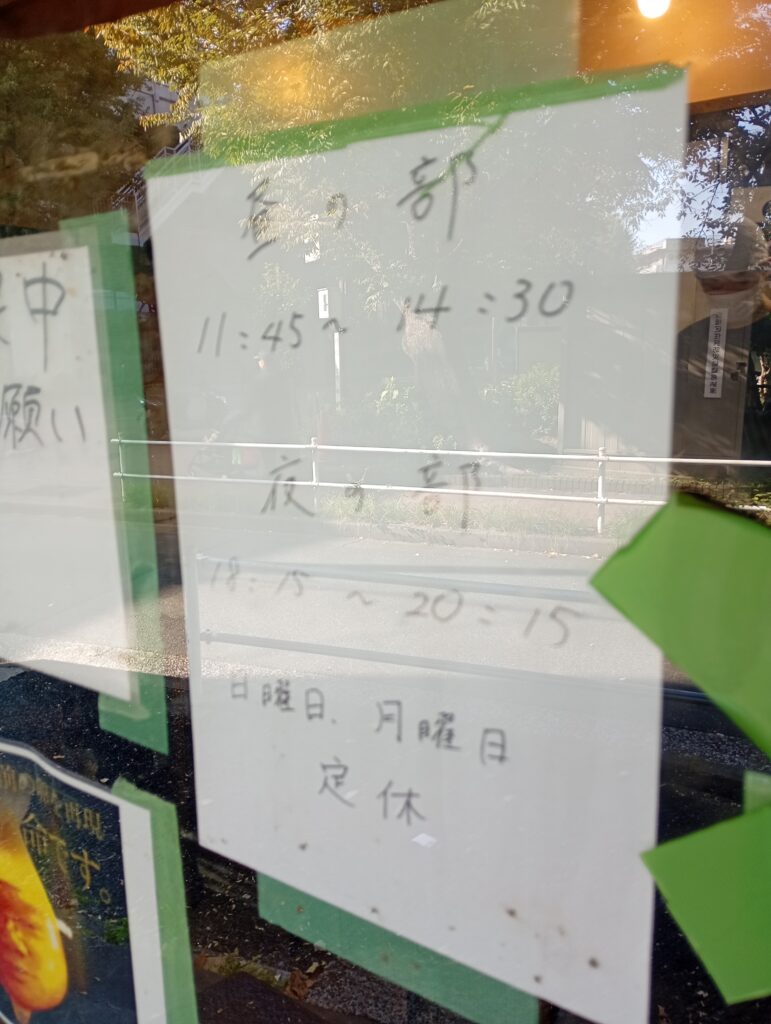 昼の部
11:45~14:30
夜の部
18:15~20:15
日曜日、月曜日
定休
中
願い
を再現
命です。